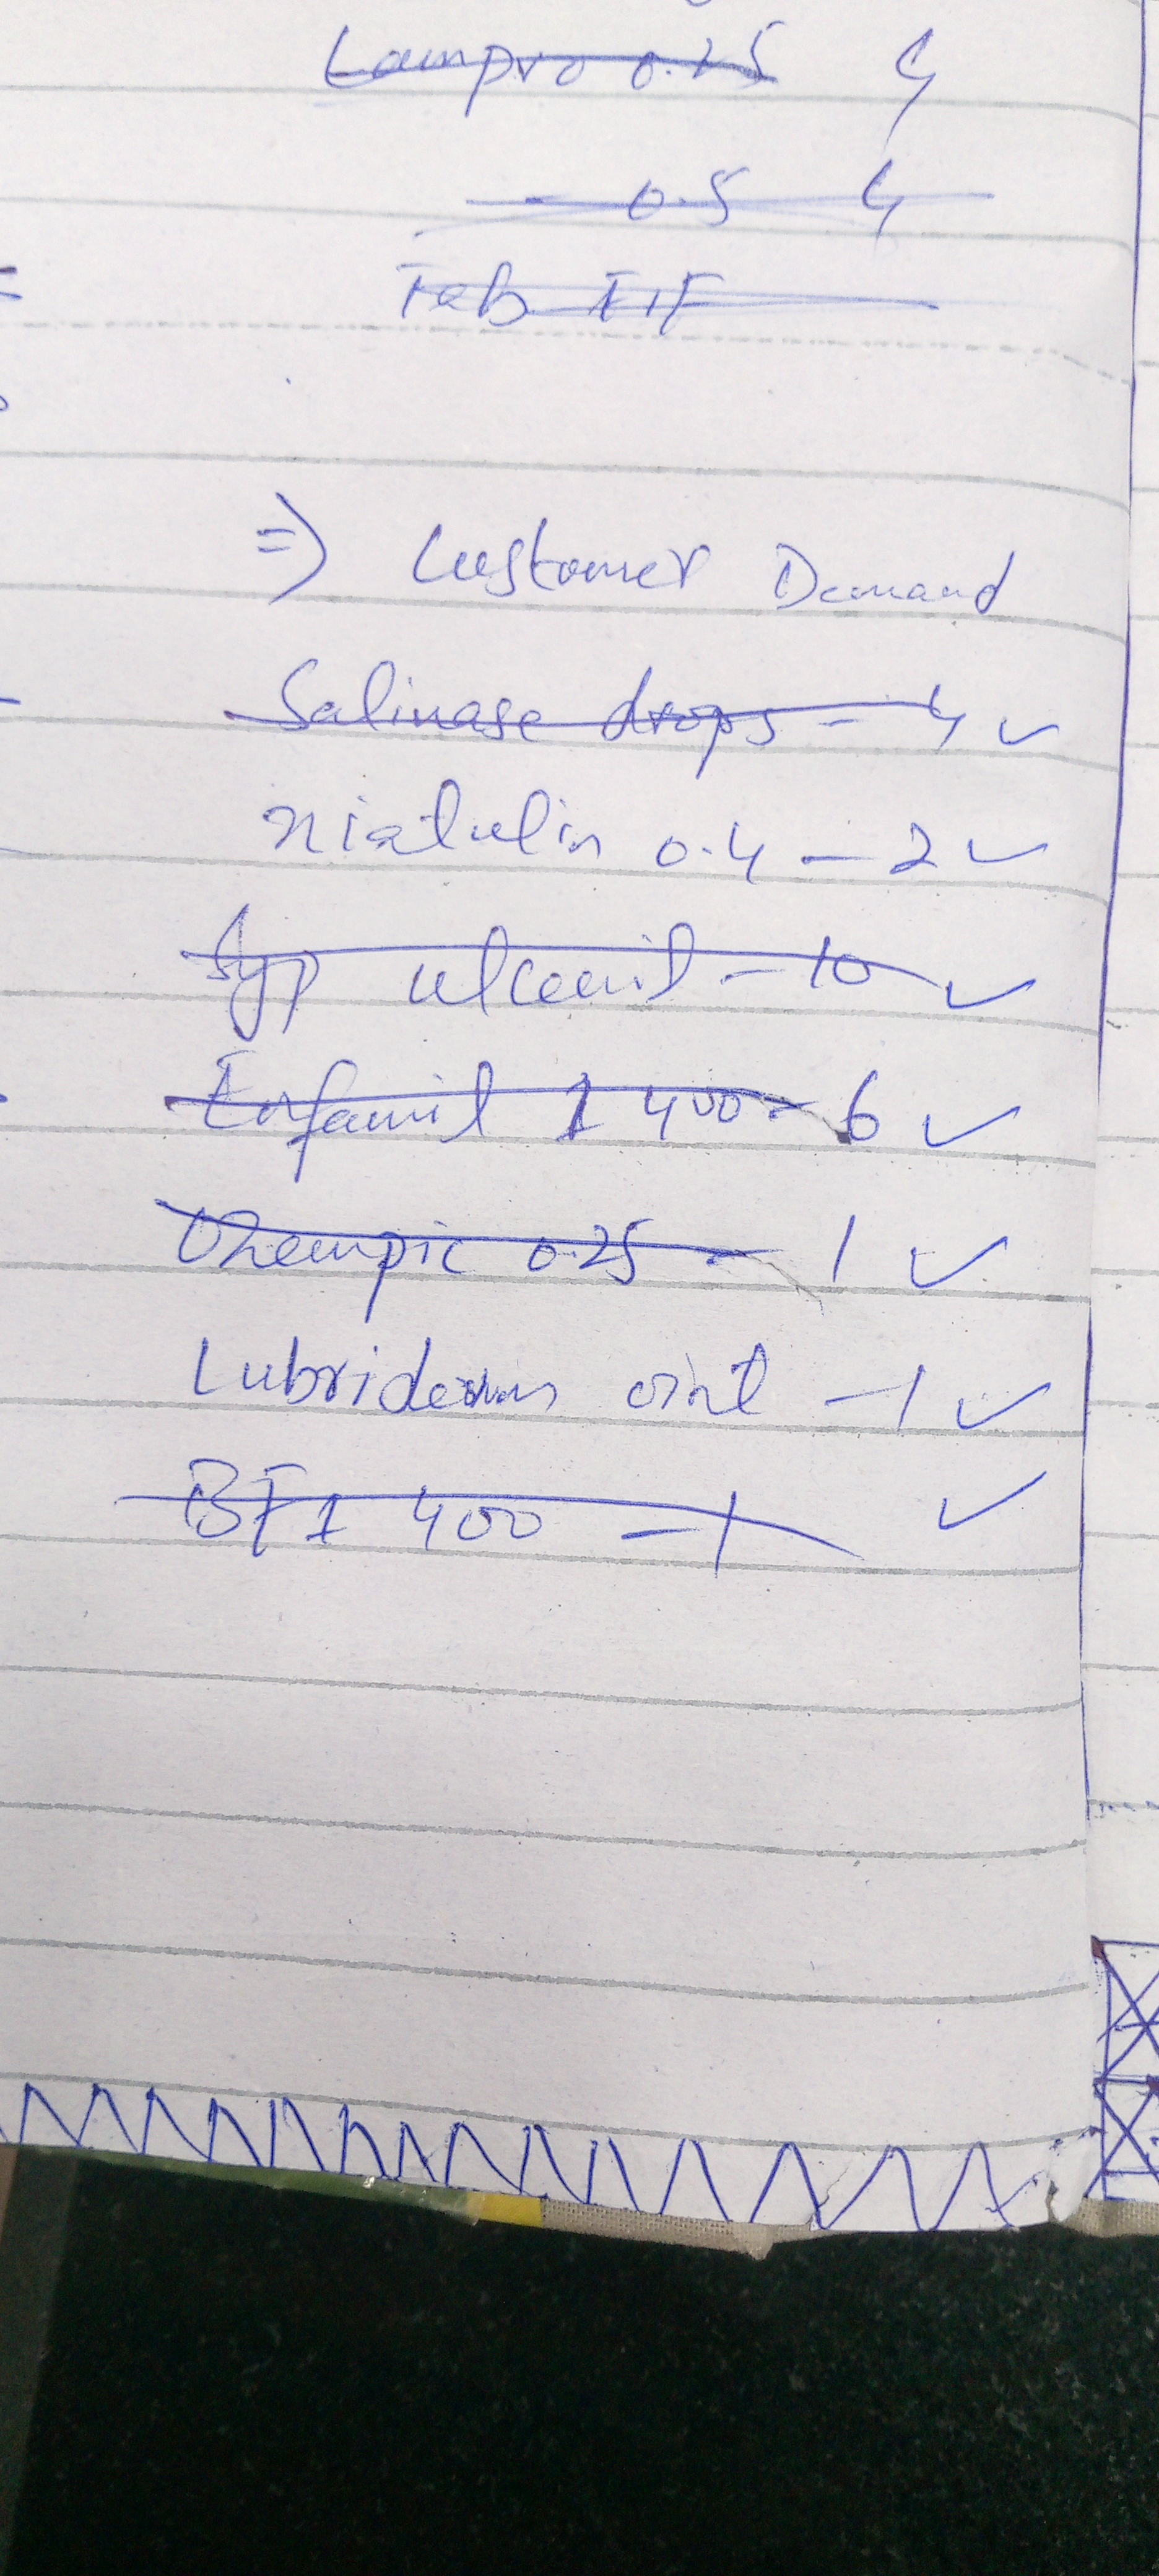 Lampro 0.25 4
- 0.5 4
Tab
=) Customer Demand
Salinase drops - 4 ✓
0.4 - 2 ✓
Syp ulcenil - 10 ✓
Enfamil 1 400 - 6 ✓
Ozempic 0.25 - 1 ✓
Lubriderm oint - 1 ✓
BF1 400 - 1 ✓